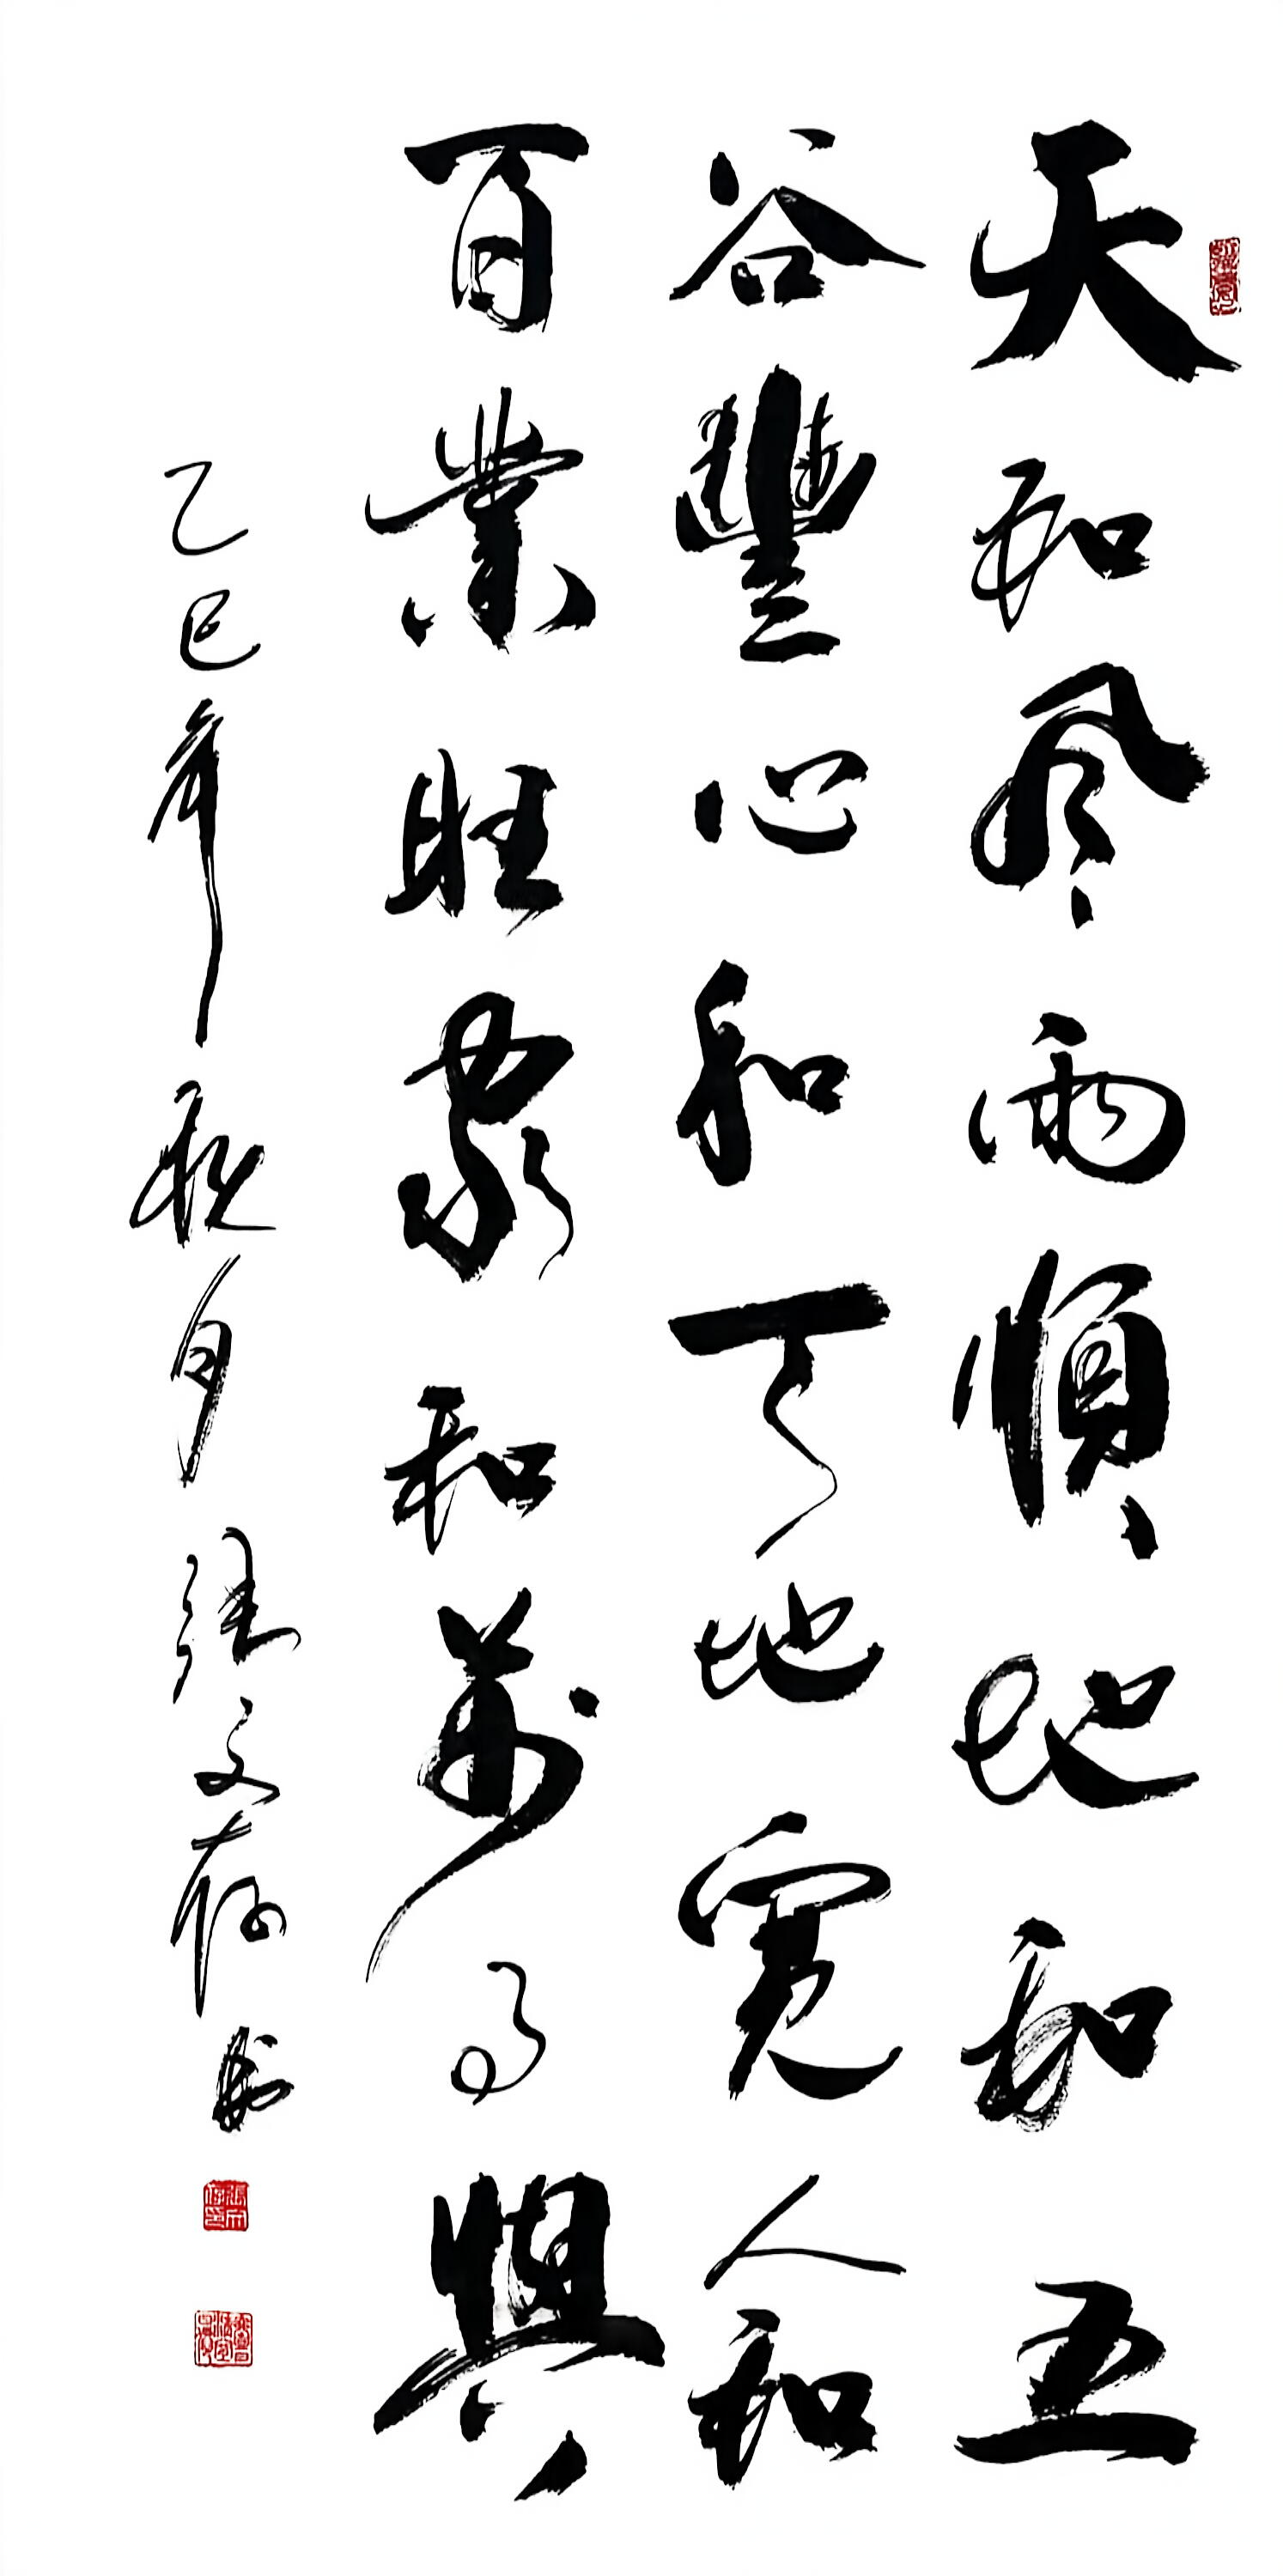 天和风雨順地和五
谷豐心和天地寬人和
百業旺家和萬事興
乙巳年秋月張文存書